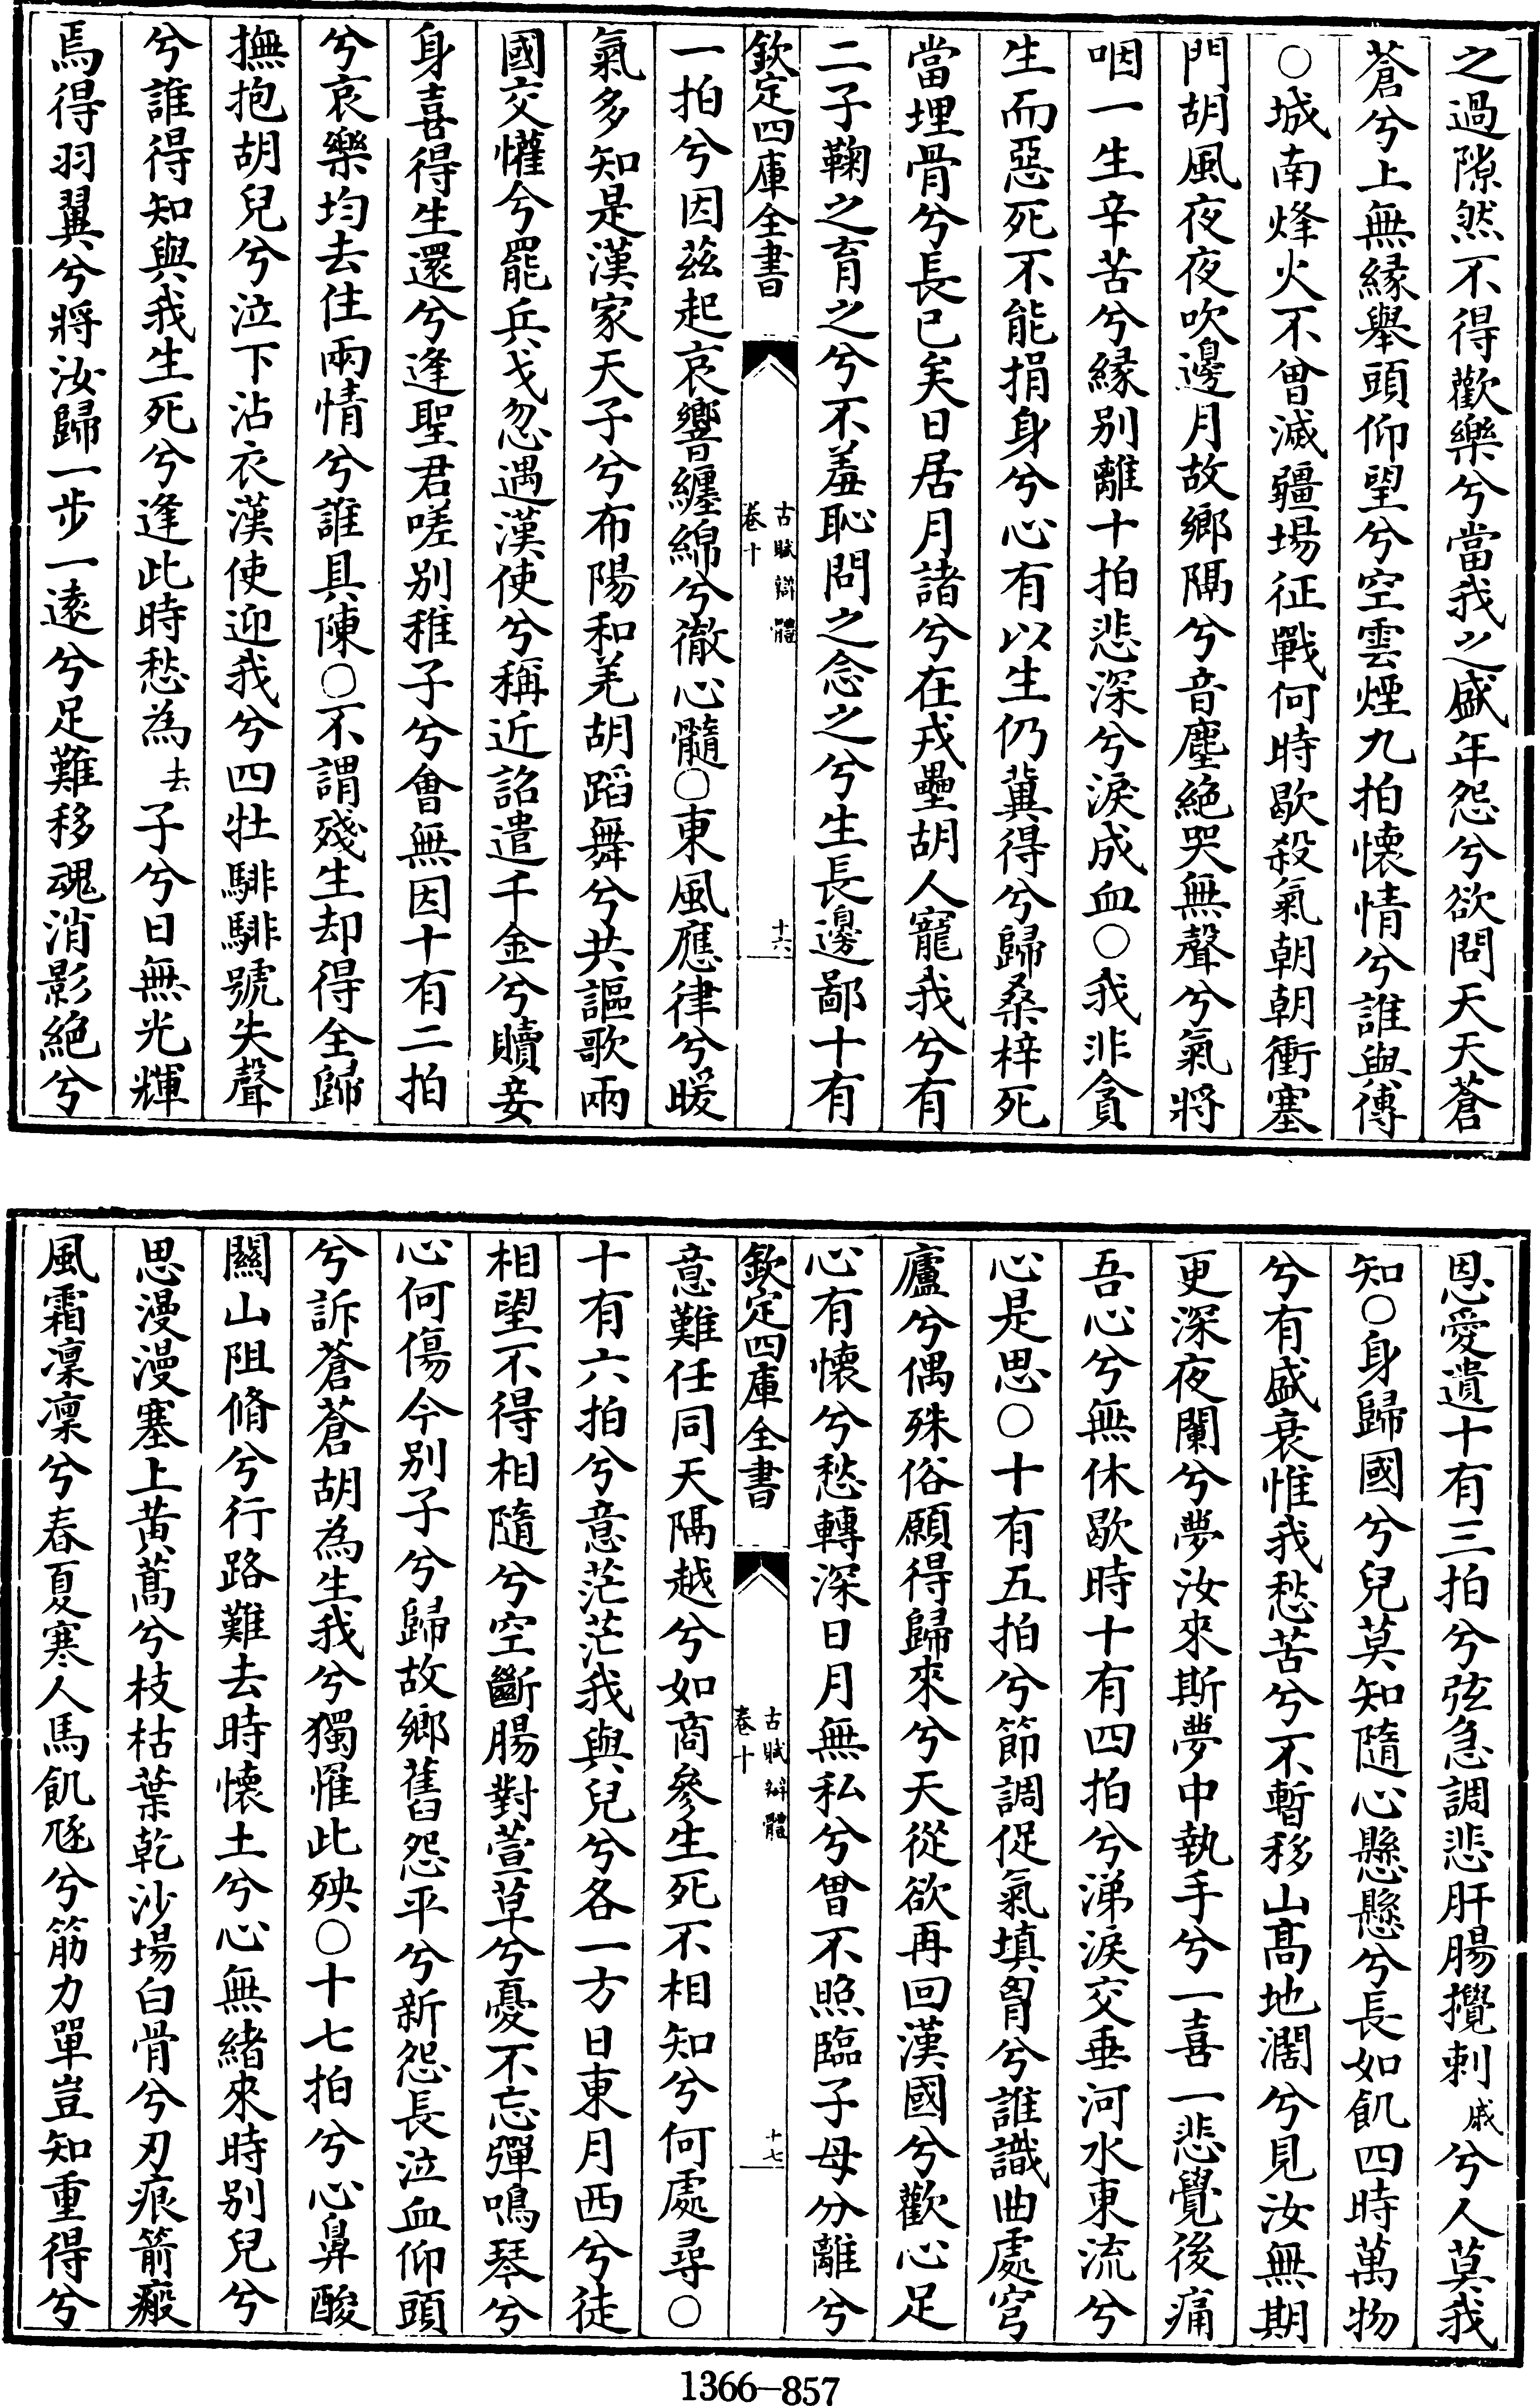 之過隙然不得歡樂兮當我之盛年怨兮欲問天天蒼
蒼兮上無縁舉頭仰望兮空雲煙九拍懐情兮誰與傳
○城南烽火不曾滅疆場征戰何時歇殺氣朝朝衝塞
門胡風夜夜吹邊月故鄉隔兮音塵絶哭無聲兮氣將
咽一生辛苦兮縁别離十拍悲深兮淚成血○我非貪
生而惡死不能捐身兮心有以生仍冀得兮歸桑梓死
當埋骨兮長已矣日居月諸兮在戎壘胡人寵我兮有
二子鞠之育之兮不羞恥問之念之兮生長邊鄙十有
欽定四庫全書
古賦辯體
卷十
十六
一拍兮因茲起哀響纒綿兮徹心髓○東風應律兮暖
氣多知是漢家天子兮布陽和羌胡蹈舞兮共謳歌兩
國交懽兮罷兵戈忽遇漢使兮稱近詔遣千金兮贖妾
身喜得生還兮逢聖君嗟别稚子兮會無因十有二拍
兮哀樂均去住兩情兮誰具陳○不謂殘生却得全歸
撫抱胡兒兮泣下沾衣漢使迎我兮四牡騑騑號失聲
兮誰得知與我生死兮逢此時愁為去子兮日無光輝
焉得羽翼兮將汝歸一步一逺兮足難移魂消影絶兮
恩愛遺十有三拍兮弦急調悲肝腸攪刺戚兮人莫我
知○身歸國兮兒莫知隨心懸懸兮長如飢四時萬物
兮有盛衰惟我愁苦兮不暫移山髙地濶兮見汝無期
更深夜闌兮夢汝來斯夢中執手兮一喜一悲覺後痛
吾心兮無休歇時十有四拍兮涕淚交垂河水東流兮
心是思○十有五拍兮節調促氣填胷兮誰識曲處穹
廬兮偶殊俗願得歸來兮天從欲再回漢國兮歡心足
心有懷兮愁轉深日月無私兮曾不照臨子母分離兮
欽定四庫全書
古賦辯體
卷十
十七
意難任同天隔越兮如商參生死不相知兮何處尋○
十有六拍兮意茫茫我與兒兮各一方日東月西兮徒
相望不得相隨兮空斷腸對萱草兮憂不忘彈鳴琴兮
心何傷今别子兮歸故鄉舊怨平兮新怨長泣血仰頭
兮訴蒼蒼胡為生我兮獨罹此殃○十七拍兮心鼻酸
關山阻脩兮行路難去時懐土兮心無緒來時别兒兮
思漫漫塞上黄蒿兮枝枯葉乾沙場白骨兮刃痕箭瘢
風霜凜凜兮春夏寒人馬飢豗兮筋力單豈知重得兮
1366—857